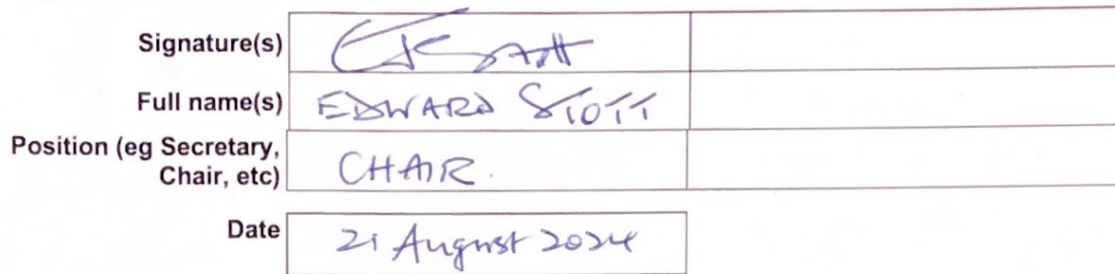 Signature(s)
Full name(s) EDWARD STOTT
Position (eg Secretary,
Chair, etc) CHAIR.
Date 21 August 2024